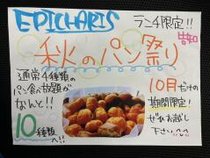 EPICHARIS
ランチ限定!!
告知
秋のパン祭り
通常4種類の
パン食べ放題が
なんと!!
10種類へ!!
10月だけの
期間限定!
ぜひお越し
下さい